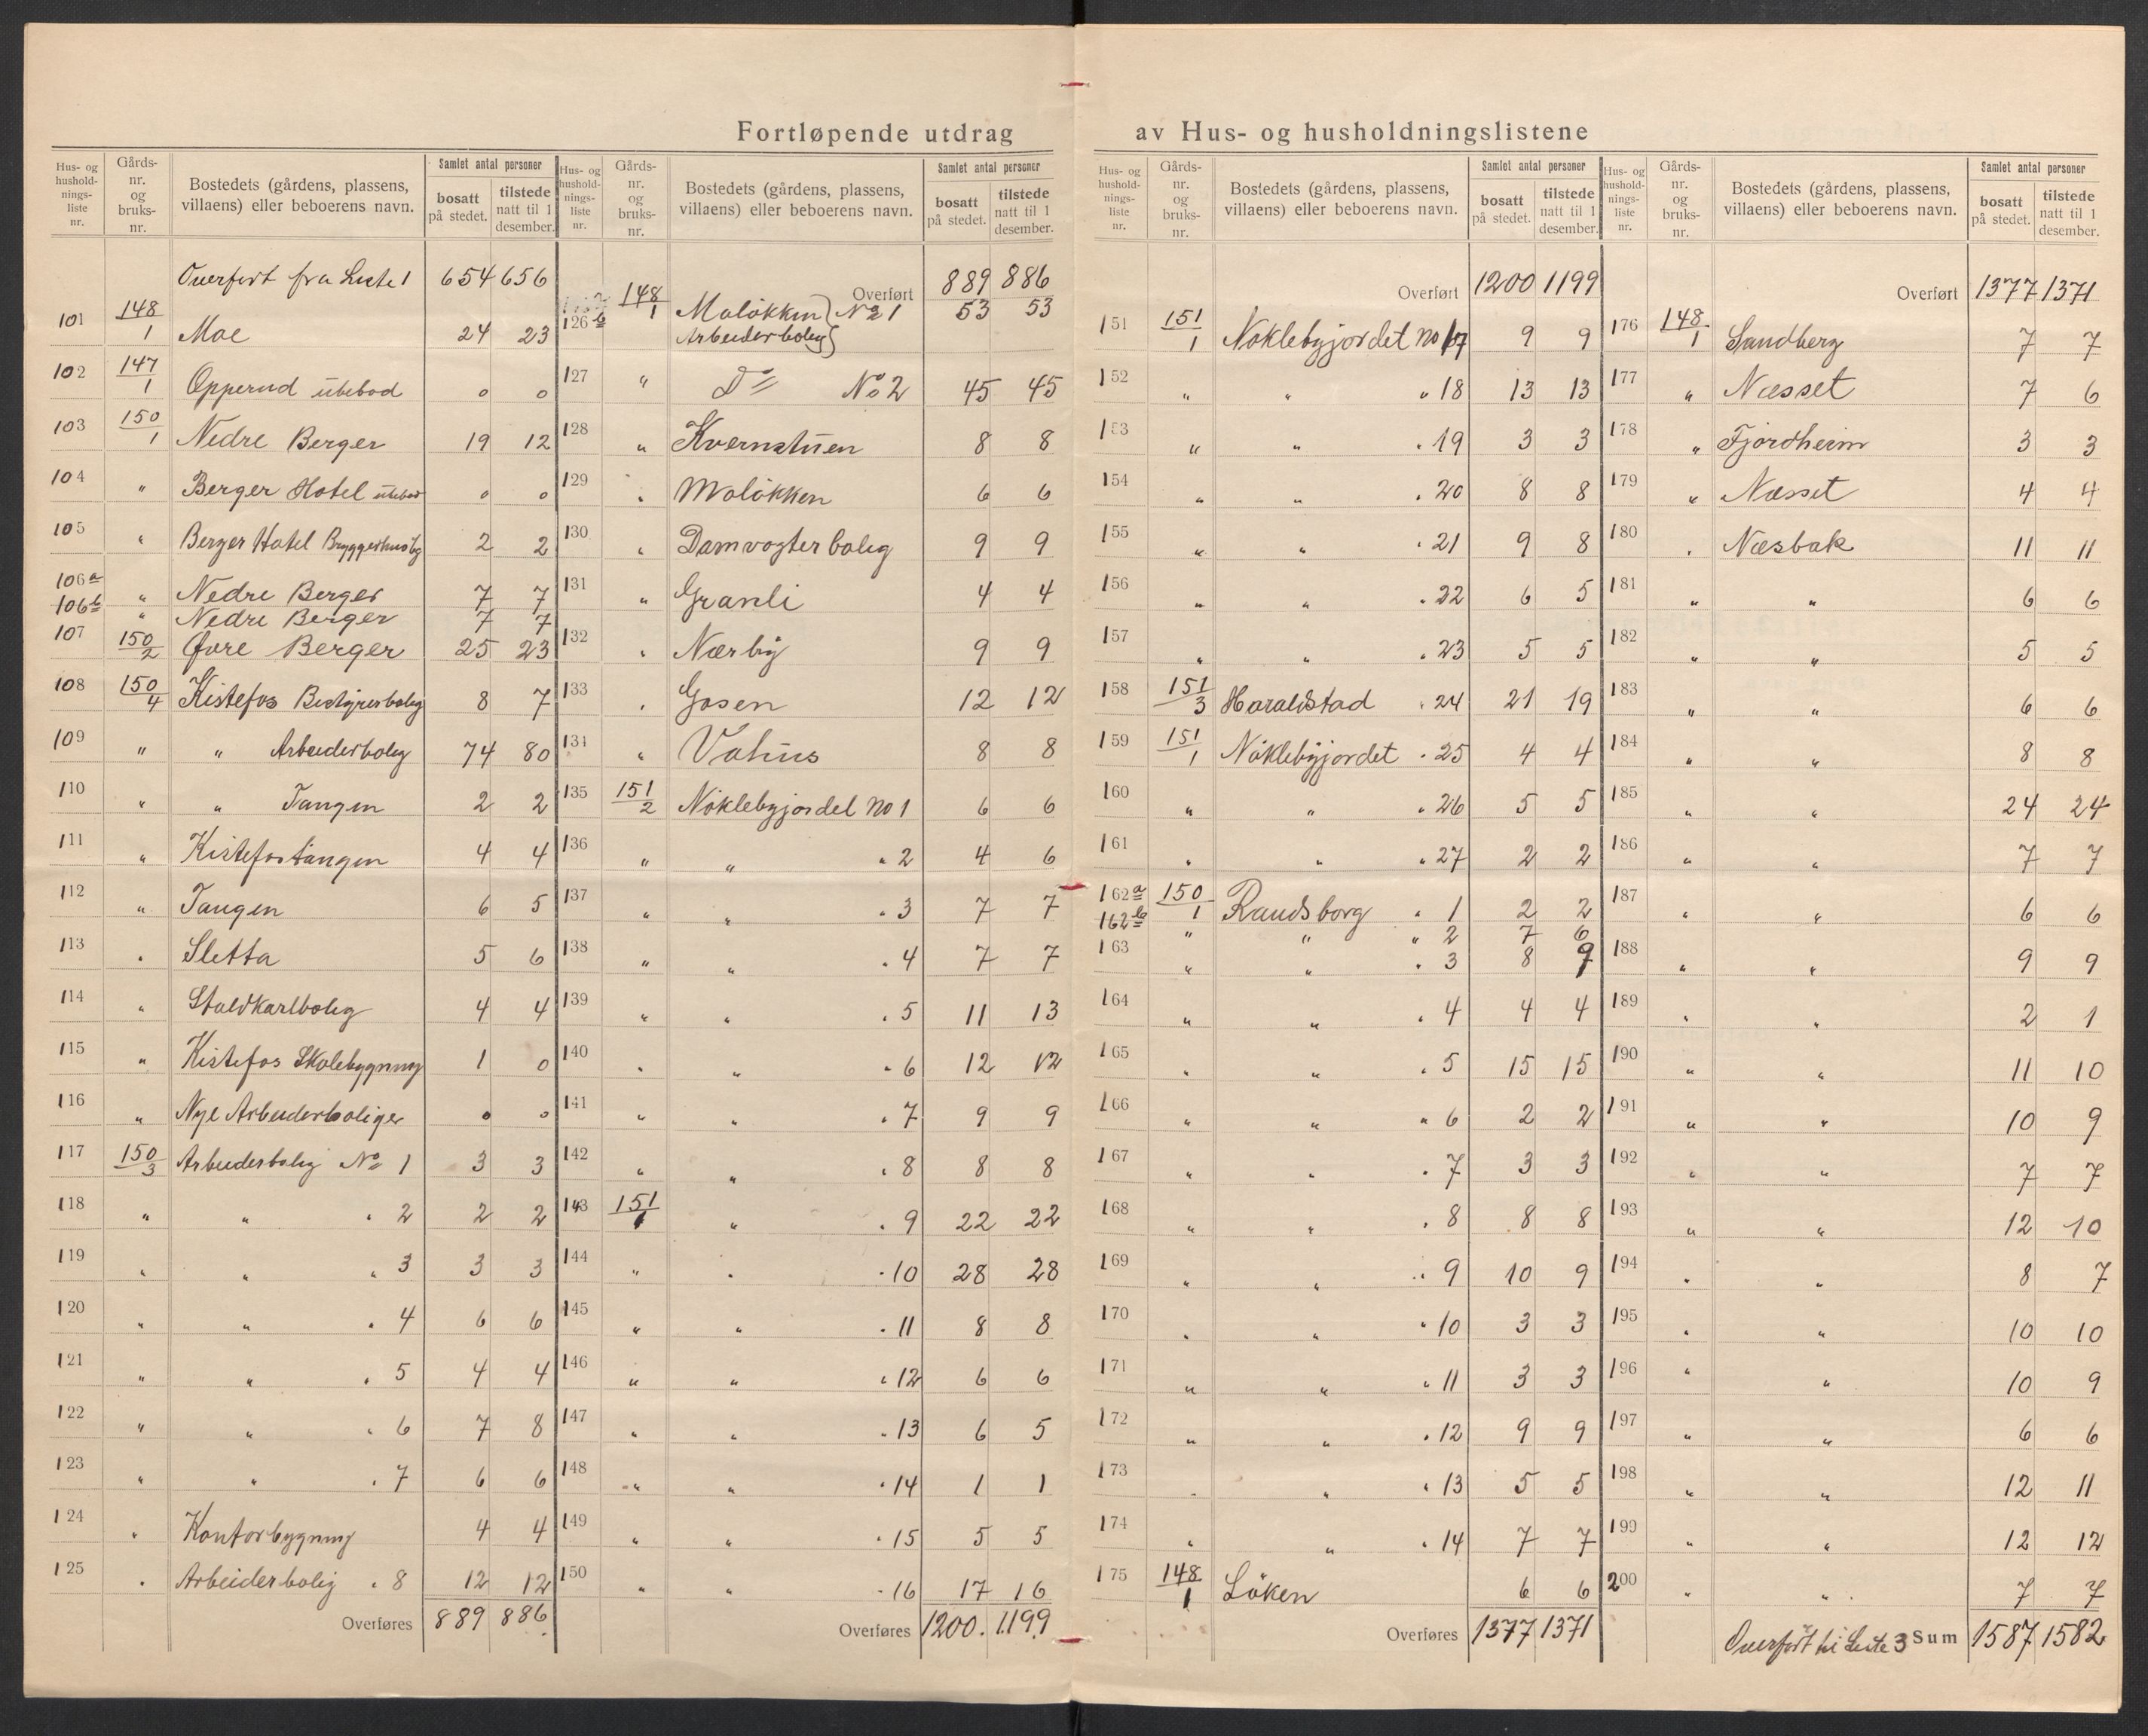 Fortløpende utdrag av Hus- og husholdningslistene
Hus- og husholdnings-liste nr. | Gårds-nr. og bruks-nr. | Bostedets (gårdens, plassens, villaens) eller beboerens navn. | Samlet antal personer | bosatt på stedet. | tilstede natt til 1 desember.
Overført fra Liste 1 654 656
101 148/1 Moe 24 23
102 147/1 Opperud ubebod 0 0
103 150/1 Nedre Berger 19 12
104 " Berger Hotel ubebod 0 0
105 " Berger Hotel Bryggerhusbg 2 2
106a " Nedre Berger 7 7
106b " Nedre Berger 7 7
107 150/2 Øvre Berger 25 23
108 150/4 Kistefos Bestyrerbolig 8 7
109 " " Arbeiderbolig 74 80
110 " " Tangen 2 2
111 " Kistefostangen 4 4
112 " Tangen 6 5
113 " Sletta 5 6
114 " Staldkarlbolig 4 4
115 " Kistefos Skolebygning 1 0
116 " Nye Arbeiderboliger 0 0
117 150/3 Arbeiderbolig No 1 3 3
118 " " " 2 2 2
119 " " " 3 3 3
120 " " " 4 6 6
121 " " " 5 4 4
122 " " " 6 7 8
123 " " " 7 6 6
124 " Kontorbygning 4 4
125 " Arbeiderbolig " 8 12 12
Overføres 889 886
Hus- og husholdnings-liste nr. | Gårds-nr. og bruks-nr. | Bostedets (gårdens, plassens, villaens) eller beboerens navn. | Samlet antal personer | bosatt på stedet. | tilstede natt til 1 desember.
Overført 889 886
126b 148/1 Moløkken Arbeiderbolig No 1 53 53
127 " Do No 2 45 45
128 " Kvernstuen 8 8
129 " Moløkken 6 6
130 " Damvogterbolig 9 9
131 " Granli 4 4
132 " Nærby 9 9
133 " Gosen 12 12
134 " Vatnus 8 8
135 151/2 Nøklebyjordet No 1 6 6
136 " " " 2 4 6
137 " " " 3 7 7
138 " " " 4 7 7
139 " " " 5 11 13
140 " " " 6 12 12
141 " " " 7 9 9
142 " " " 8 8 8
143 151/1 " " 9 22 22
144 " " " 10 28 28
145 " " " 11 8 8
146 " " " 12 6 6
147 " " " 13 6 5
148 " " " 14 1 1
149 " " " 15 5 5
150 " " " 16 17 16
Overføres 1200. 1199
Hus- og husholdnings-liste nr. | Gårds-nr. og bruks-nr. | Bostedets (gårdens, plassens, villaens) eller beboerens navn. | Samlet antal personer | bosatt på stedet. | tilstede natt til 1 desember.
Overført 1200 1199
151 151/1 Nøklebyjordet No 17 9 9
152 " " " 18 13 13
153 " " " 19 3 3
154 " " " 20 8 8
155 " " " 21 9 8
156 " " " 22 6 5
157 " " " 23 5 5
158 151/3 Haraldstad " 24 21 19
159 151/1 Nøklebyjordet " 25 4 4
160 " " " 26 5 5
161 " " " 27 2 2
162a 150/1 Randsborg " 1 2 2
162b " " " 2 7 6
163 " " " 3 8 9
164 " " " 4 4 4
165 " " " 5 15 15
166 " " " 6 2 2
167 " " " 7 3 3
168 " " " 8 8 8
169 " " " 9 10 9
170 " " " 10 3 3
171 " " " 11 3 3
172 " " " 12 9 9
173 " " " 13 5 5
174 " " " 14 7 7
175 148/1 Løken 6 6
Overføres 1377 1371
Hus- og husholdnings-liste nr. | Gårds-nr. og bruks-nr. | Bostedets (gårdens, plassens, villaens) eller beboerens navn. | Samlet antal personer | bosatt på stedet. | tilstede natt til 1 desember.
Overført 1377 1371
176 148/1 Sandberg 7 7
177 " Næsset 7 6
178 " Fjordheim 3 3
179 " Næsset 4 4
180 " Næsbak 11 11
181 " " 6 6
182 " " 5 5
183 " " 6 6
184 " " 8 8
185 " " 24 24
186 " " 7 7
187 " " 6 6
188 " " 9 9
189 " " 2 1
190 " " 11 10
191 " " 10 9
192 " " 7 7
193 " " 12 10
194 " " 8 7
195 " " 10 10
196 " " 10 9
197 " " 6 6
198 " " 12 11
199 " " 12 12
200 " " 7 7
Overført til Liste 3 Sum 1587 1582